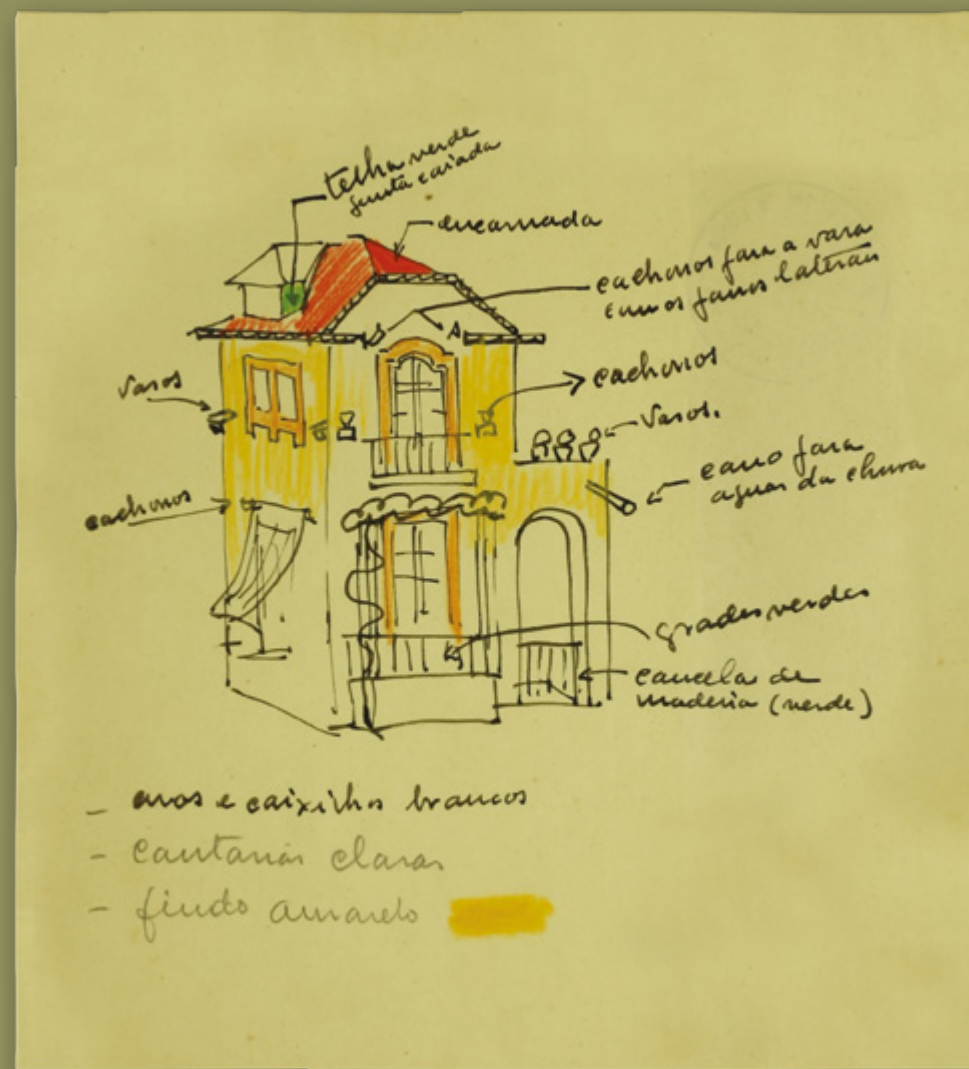 telha verde
junta caiada
encarnada
cachorros para a vara
com os panos laterais
cachorros
Vasos
Vasos.
cano para
aguas da chuva
cachorros
grades verdes
cancela de
madeira (verde)
- aros e caixilhos brancos
- cantarias claras
- fundo amarelo